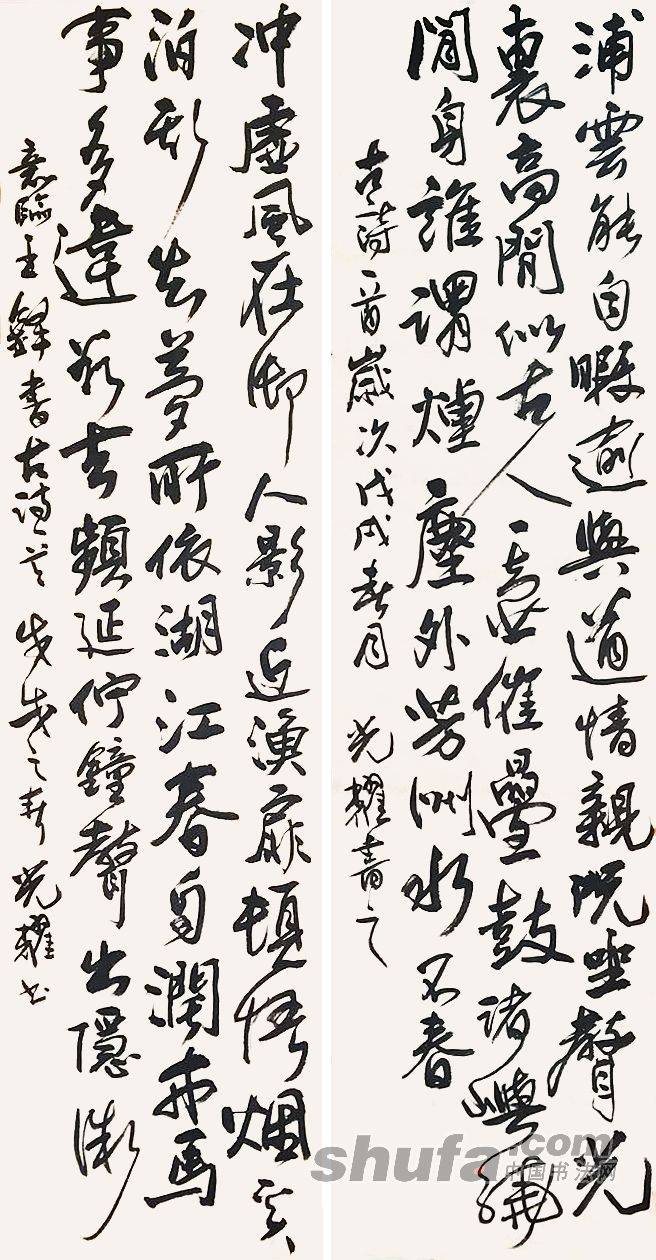 浦雲能自暇與道情親况聖聲光
裏高閒似古人一催疊鼓諸嶼
閒身誰謂煙塵外芳洲水不春
古詩一首歲次戊戌春月 光耀書之
冲虛風在御人影近漁扉頓悟烟
泊形夢所依湖江春自潤
事多違欲去頻延佇鐘聲出隱微
意臨王鐸書古詩 戊戌之春 光耀書
shufa.com
中国书法网